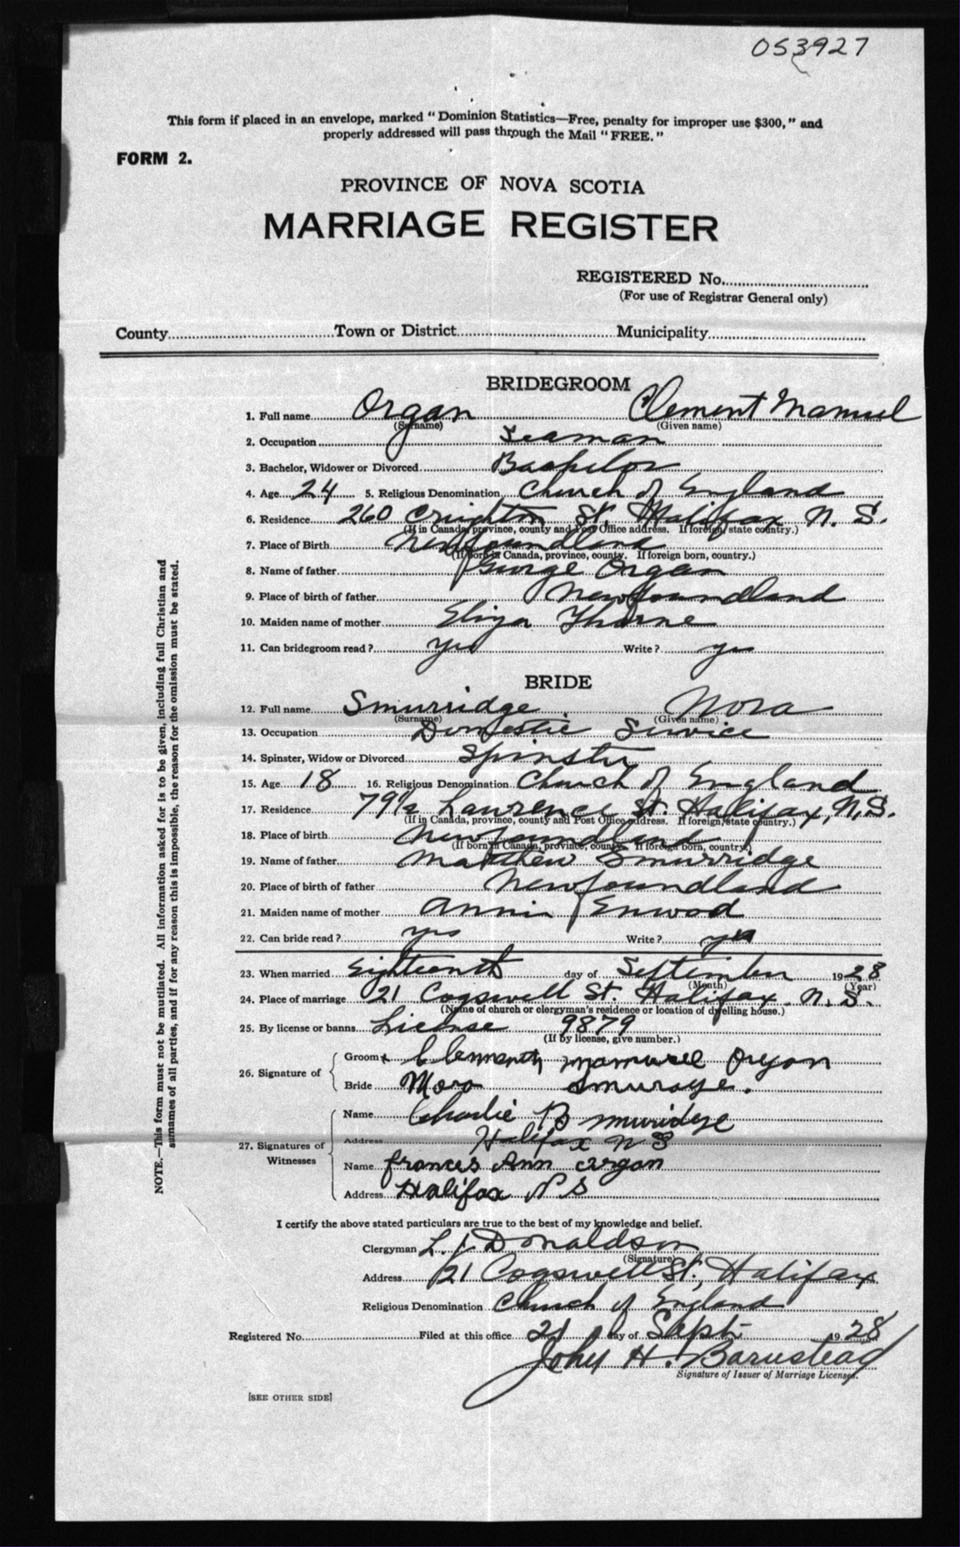 053927
This form if placed in an envelope, marked "Dominion Statistics—Free, penalty for improper use $300," and
properly addressed will pass through the Mail "FREE."
FORM 2.
PROVINCE OF NOVA SCOTIA
MARRIAGE REGISTER
REGISTERED No.
(For use of Registrar General only)
County Town or District Municipality
BRIDEGROOM
1. Full name Organ Clement Manuel
(Surname) (Given name)
2. Occupation Seaman
3. Bachelor, Widower or Divorced Bachelor
4. Age 24 5. Religious Denomination Church of England
6. Residence 260 Creighton St. Halifax N. S.
(If in Canada, province, county and Post Office address. If foreign, state country.)
7. Place of Birth Newfoundland
(If born in Canada, province, county. If foreign born, country.)
8. Name of father George Organ
9. Place of birth of father Newfoundland
10. Maiden name of mother Eliza Thorne
11. Can bridegroom read? yes Write? yes
BRIDE
12. Full name Smurridge Nora
(Surname) (Given name)
13. Occupation Domestic Service
14. Spinster, Widow or Divorced Spinster
15. Age 18 16. Religious Denomination Church of England
17. Residence 79½ Lawrence St. Halifax, N.S.
(If in Canada, province, county and Post Office address. If foreign, state country.)
18. Place of birth Newfoundland
(If born in Canada, province, county. If foreign born, country.)
19. Name of father Matthew Smurridge
20. Place of birth of father Newfoundland
21. Maiden name of mother Annie Enwod
22. Can bride read? yes Write? yes
23. When married Eighteenth day of September 1928
(Month) (Year)
24. Place of marriage 21 Cogswell St. Halifax. N. S.
(Name of church or clergyman's residence or location of dwelling house.)
25. By license or banns License 9879
(If by license, give number.)
26. Signature of
Groom Organ
Bride
27. Signatures of Witnesses
Name Charlie
Address Halifax N S
Name Frances Ann Organ
Address Halifax N S
I certify the above stated particulars are true to the best of my knowledge and belief.
Clergyman L. J. Donaldson
(Signature)
Address 21 Cogswell St., Halifax
Religious Denomination Church of England
Registered No. Filed at this office 21 day of Sept. 1928
John H. Barnstead
Signature of Issuer of Marriage Licenses.
[SEE OTHER SIDE]
NOTE.—This form must not be mutilated. All information asked for is to be given, including full Christian and
surnames of all parties, and if for any reason this is impossible, the reason for the omission must be stated.